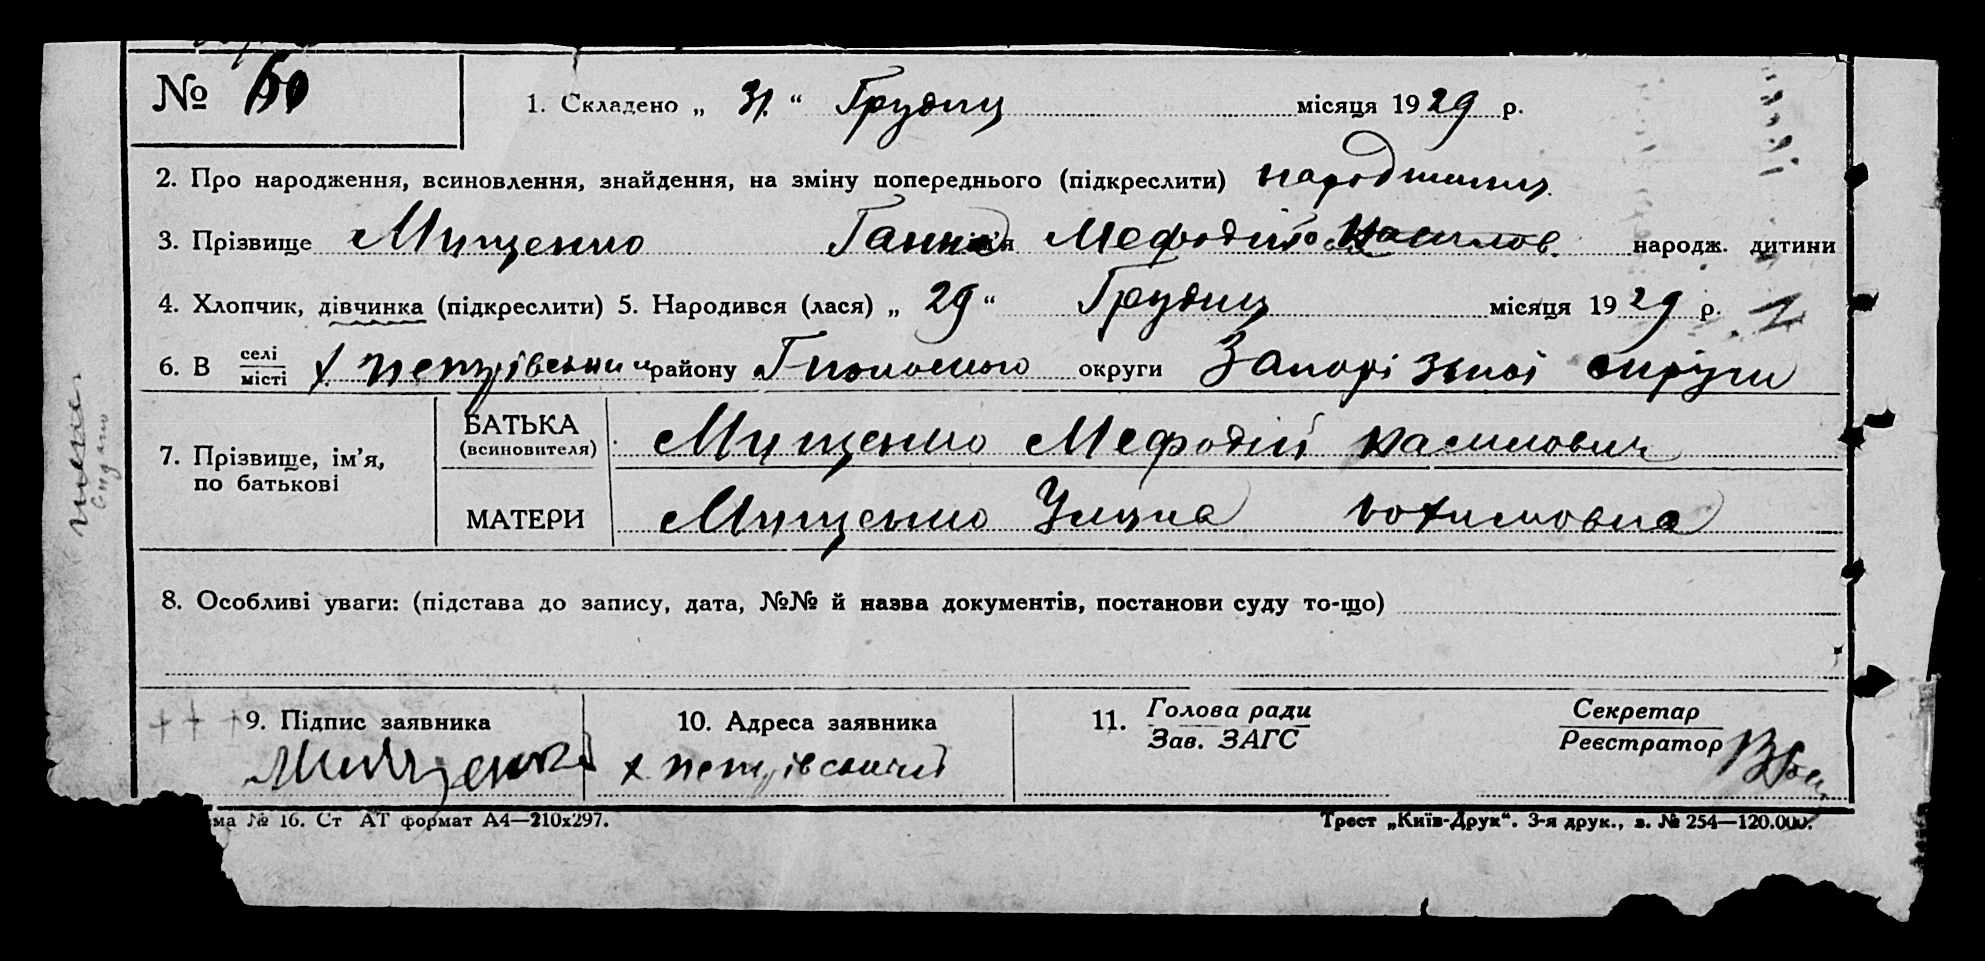 № 50
1. Складено „ 31 “ Грудня місяця 1929 р.
2. Про народження, всиновлення, знайдення, на зміну попереднього (підкреслити)
3. Прізвище Мищенко Ганна Мефодій народж. дитини
4. Хлопчик, дівчинка (підкреслити) 5. Народився (лася) „ 29 “ Грудня місяця 1929 р.
6. В селі
місті х петрівський району округи Запорізької округи
7. Прізвище, ім'я,
по батькові
БАТЬКА
(всиновителя) Мищенко Мефодій касимович
МАТЕРИ Мищенко
8. Особливі уваги: (підстава до запису, дата, №№ й назва документів, постанови суду то-що)
9. Підпис заявника
Мищенко
10. Адреса заявника
х петрівський
11. Голова ради
Зав. ЗАГС
Секретар
Реєстратор
ма № 16. Ст АТ формат А4—210х297.
Трест „Київ-Друк“. 3-я друк., з. № 254—120.000.